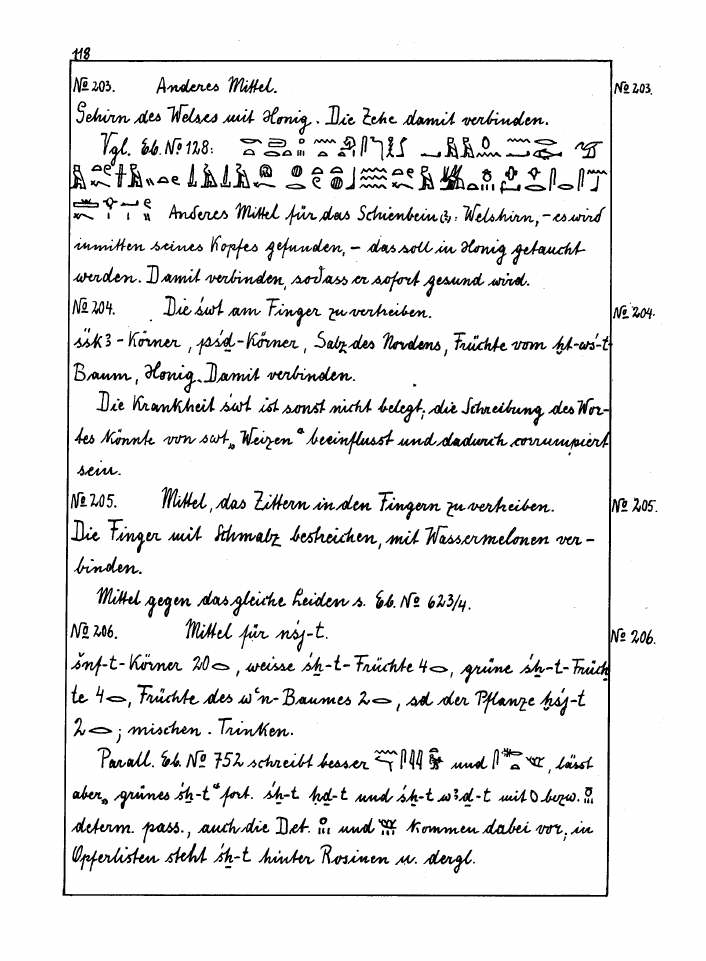 118
№ 203. Anderes Mittel. № 203.
Gehirn des Welses mit Honig. Die Zehe damit verbinden.
Vgl. Eb. № 128:
Anderes Mittel für das Schienbein (?): Welshirn, – es wird
inmitten seines Kopfes gefunden, – das soll in Honig getaucht
werden. Damit verbinden, sodass er sofort gesund wird.
№ 204. Die śwt am Finger zu vertreiben. № 204.
šśk3-Körner, pśḏ-Körner, Salz des Nordens, Früchte vom ḫt-wś-t
Baum, Honig. Damit verbinden.
Die Krankheit śwt ist sonst nicht belegt; die Schreibung des Wor-
tes könnte von swt „Weizen“ beeinflusst und dadurch corrumpiert
sein.
№ 205. Mittel, das Zittern in den Fingern zu vertreiben. № 205.
Die Finger mit Schmalz bestreichen, mit Wassermelonen ver-
binden.
Mittel gegen das gleiche Leiden s. Eb. № 623/4.
№ 206. Mittel für nśj-t. № 206.
šnf-t-Körner 20, weisse śẖ-t-Früchte 4, grüne śẖ-t-Früch
te 4, Früchte des wꜥn-Baumes 2, sd der Pflanze ẖśj-t
2; mischen. Trinken.
Parall. Eb. № 752 schreibt besser und , lässt
aber „grünes śẖ-t“ fort. śẖ-t ḥḏ-t und śẖ-t w3ḏ-t mit O bezw.
determ. pass., auch die Det. und kommen dabei vor; in
Opferlisten steht śẖ-t hinter Rosinen u. dergl.